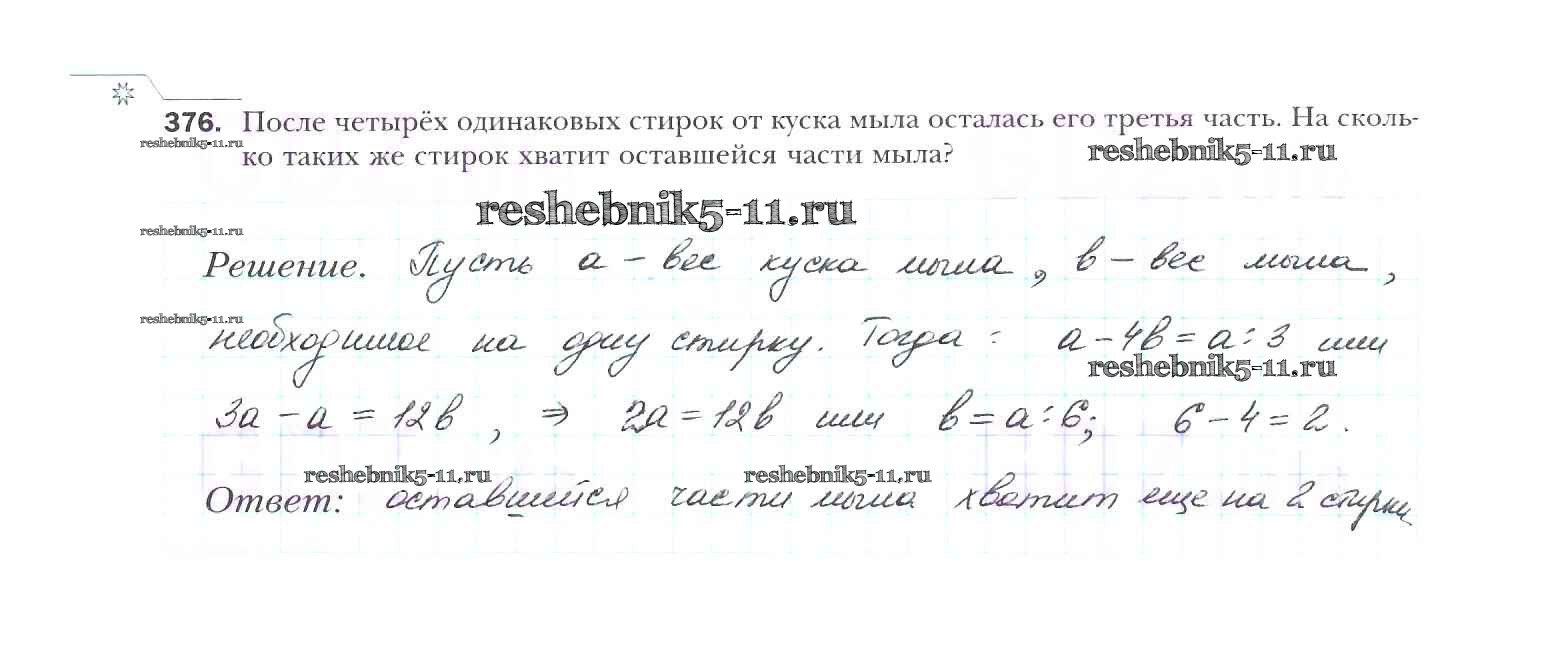 376. После четырёх одинаковых стирок от куска мыла осталась его третья часть. На сколь-
reshebnik5-11.ru
ко таких же стирок хватит оставшейся части мыла?
reshebnik5-11.ru
reshebnik5-11.ru
reshebnik5-11.ru
Решение. Пусть a – вес куска мыла, в – вес мыла,
reshebnik5-11.ru
необходимое на одну стирку. Тогда: a – 4в = a : 3 или
reshebnik5-11.ru
3a – a = 12в, ⇒ 2a = 12в или в = a : 6; 6 – 4 = 2.
reshebnik5-11.ru
reshebnik5-11.ru
Ответ: оставшейся части мыла хватит еще на 2 стирки